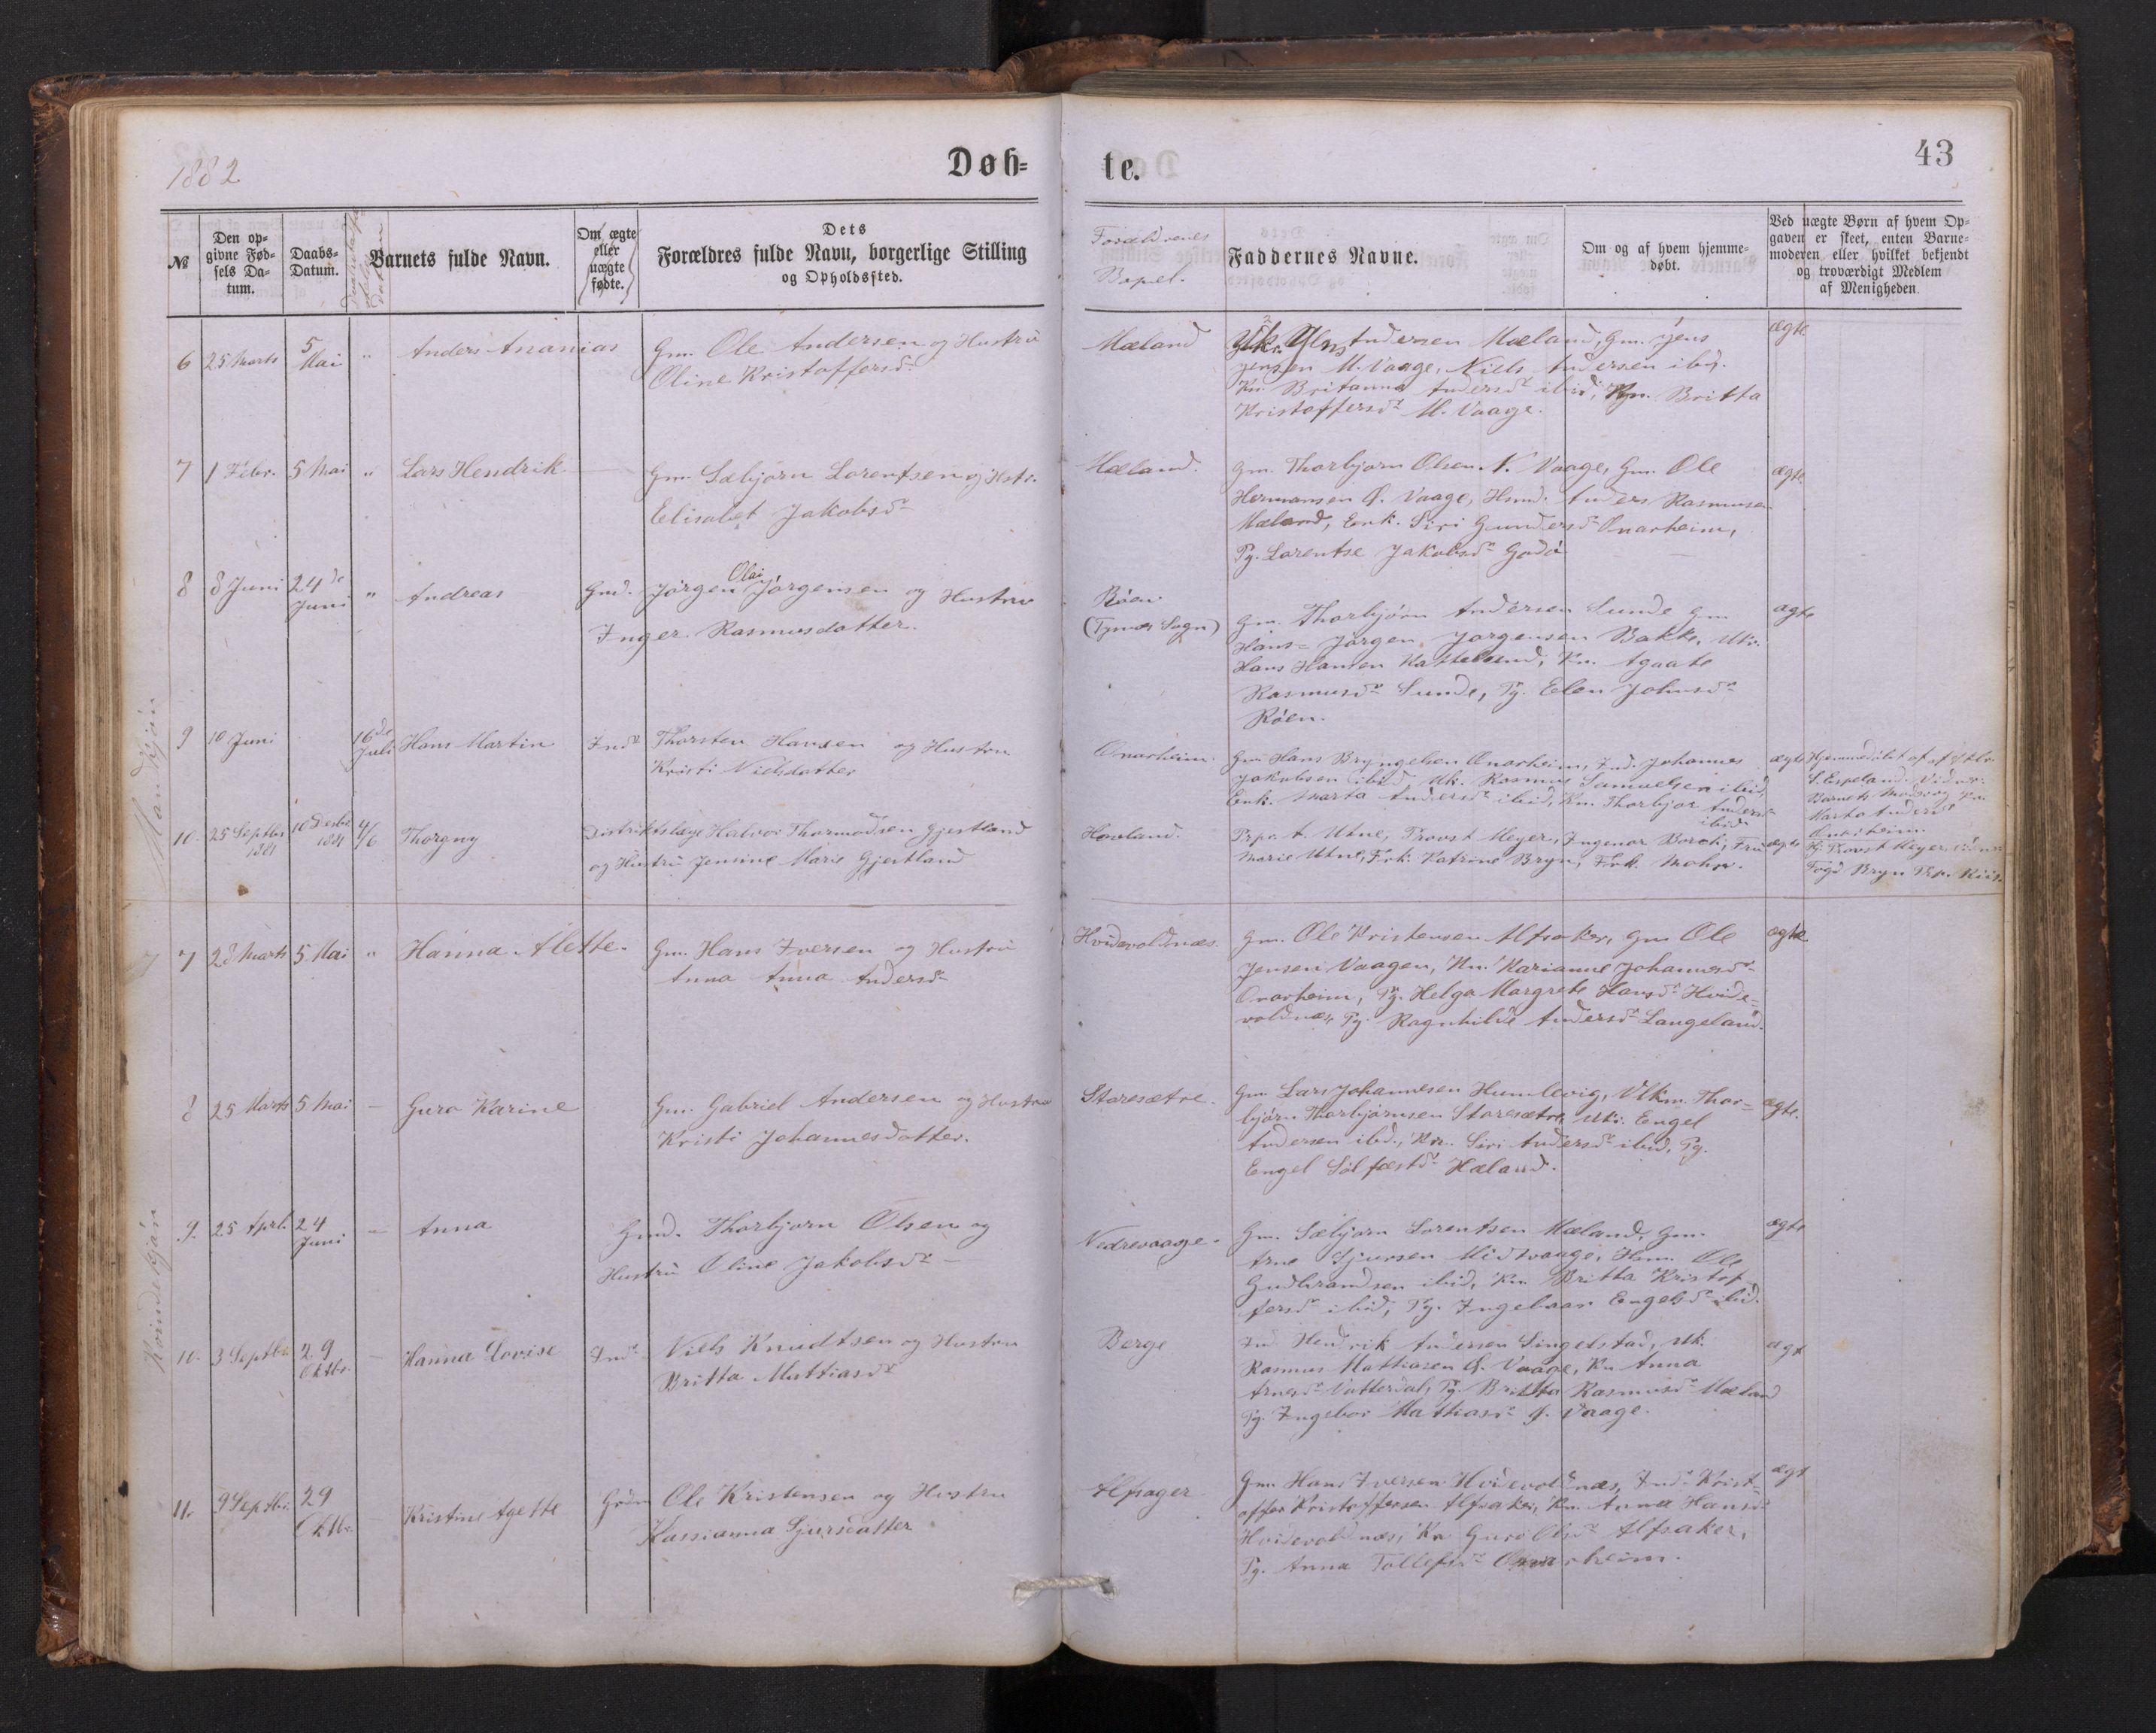 1882
Døb=
te.
43
№
Den op-
givne Fød-
sels Da-
tum.
Daabs-
Datum.
Barnets fulde Navn.
Om ægte
eller
uægte
fødte.
Dets
Forældres fulde Navn, borgerlige Stilling
og Opholdssted.
Forældrenes
Bopel.
Faddernes Navne.
Om og af hvem hjemme-
døbt.
Ved uægte Børn af hvem Op-
gaven er skeet, enten Barne-
moderen eller hvilket bekjendt
og troværdigt Medlem
af Menigheden.
Mandkjøn
6 25 Marts 5 Mai " Anders Ananias
Gm. Ole Andersen og Hustru
Oline Kristoffersdr
Mæland
Andersen Mæland, Gm. Jens
Jensen M. Vaage, Niels Andersen ibd.
Kn. Britanna Andersdr ibid, Britta
Kristoffersdr M. Vaage.
ægte
7 1 Febr. 5 Mai " Lars Hendrik
Gm. Sæbjørn Lorentsen og Hstr.
Elisabet Jakobsdr
Mæland.
Gm. Thorbjørn Olsen N. Vaage, Gm. Ole
Hermansen Ø. Vaage, Anders Rasmusen
Mæland, Enk. Siri Gundersdr Onarheim,
Pg. Lorentse Jakobsdr Godø
ægte
8 8 Juni 24de Juni " Andreas
Gmd. Jørgen Olai Jørgensen og Hustru
Inger Rasmusdatter.
Røen
(Tysnes Sogn)
Gm. Thorbjørn Andersen Sunde Gm
Hans= Jørgen Jørgensen Bakke, Uk.
Hans Hansen Kn. Agaate
Rasmusdr Sunde, Pg. Elen Johnsdr
Røen.
ægte
9 10 Juni 16de Juli Hans Martin
Indr Thorsten Hansen og Hustru
Kristi Nielsdatter
Onarheim.
Gm Hans Bryngelsen Onarheim, Ind. Johannes
Jakobsen ibid Uk. Rasmus Samuelsen ibid,
Enk. Marta Andersdr ibid, Kn. Thorbjor Andersdr
ibid.
ægte
Hjemmedøbt af
S. Espeland. Vidner:
Barnets Moder og
Marta Andersdr
Onarheim.
10. 25 Septbr 1881 10 Desbr 1881 4/6 Thorgny
Distriktslæge Halvor Thormodsen Gjestland
og Hustru Jensine Marie Gjestland
Hovland.
Prpr. A. Utne, Provst Meyer, Ingenør Borch, Fru
Marie Utne, Frk. Katrine Bryn, Frk. Mohr.
ægte
Hj. Provst Meyer. Vidn:
Fogd Bryn
Kvindekjøn
7 28 Marts 5 Mai " Hanna Alette.
Gm. Hans Iversen og Hustru
Anna Anna Andersdr
Hvidevoldnæs.
Gm. Ole Kristensen Alfsaker, Gm Ole
Jensen Vaagen, Kn. Marianne Johannesdr
Onarheim, Pg. Helga Margrete Hansdr Hvide=
voldnæs, Pg. Ragnhilde Andersdr Langeland.
ægte
8 25 Marts 5 Mai — Guro Karine
Gm. Gabriel Andersen og Hustru
Kristi Johannesdatter.
Storesætre.
Gm Lars Johannesen Humlevig, Thor=
bjørn Thorbjørnsen Storesætre, Uk. Engel
Andersen ibd., Kn. Siri Andersdr ibid, Pg.
Engel Sølfæstdr Mæland.
ægte.
9. 25 April 24 Juni — Anna
Gmd. Thorbjørn Olsen og
Hustru Oline Jakobsdr —
Nedrevaage.
Gm. Sæbjørn Lorentsen Mæland, Gm
Arne Sjursen Midtvaage, Ole
Gudbrandsen ibid, Kn Britta Kristof
fersdr ibid, Pg. Ingeborg Engelsdr ibid.
ægte
10. 3 Septbr 29 Oktbr. — Hanna Lovise
Indr Niels Knudtsen og Hustru
Britta Mattiasdr
Berge
Ind Hendrik Andersen Singelstad, Uk.
Rasmus Mathiasen Ø. Vaage, Kn Anna
Arnesdr Vatterdal, Pg. Britta Rasmusdr Mæland
Pg. Ingebor Mathiasdr Ø. Vaage.
ægt
11. 9 Septbr. 29 Oktbr. — Kristine Agette
Grdm Ole Kristensen og Hustru
Kassianna Sjursdatter
Alfsager
Gm Hans Iversen Hvidevoldnæs, Indr Krist=
offer Kristoffersen Alfsaker, Kn. Anna Hansdr
Hvidevoldnæs, Kn Guro Olsdr Alfsaker,
Pg. Anna Tollefsdr Onarheim.
ægt